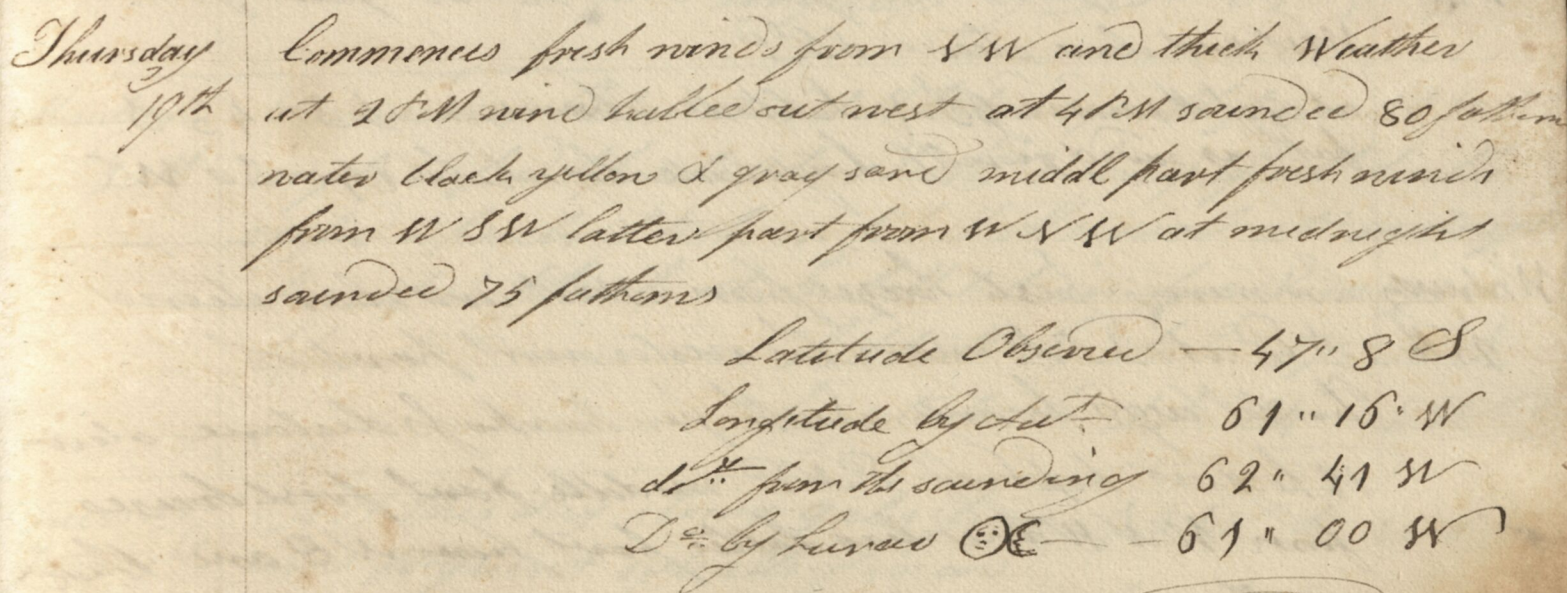 Thursday 19th
Commences fresh winds from NW and thick Weather
at 2 PM wind halled out west at 4 PM sounded 80 fathom
water black yellow & gray sand middl part fresh winds
from WSW latter part from WNW at midnight
sounded 75 fathoms
Latitude Observed — 47" 8 S
Longitude by 61" 16" W
from the sounding 62" 41 W
Do by Lunar — — 61" 00 W